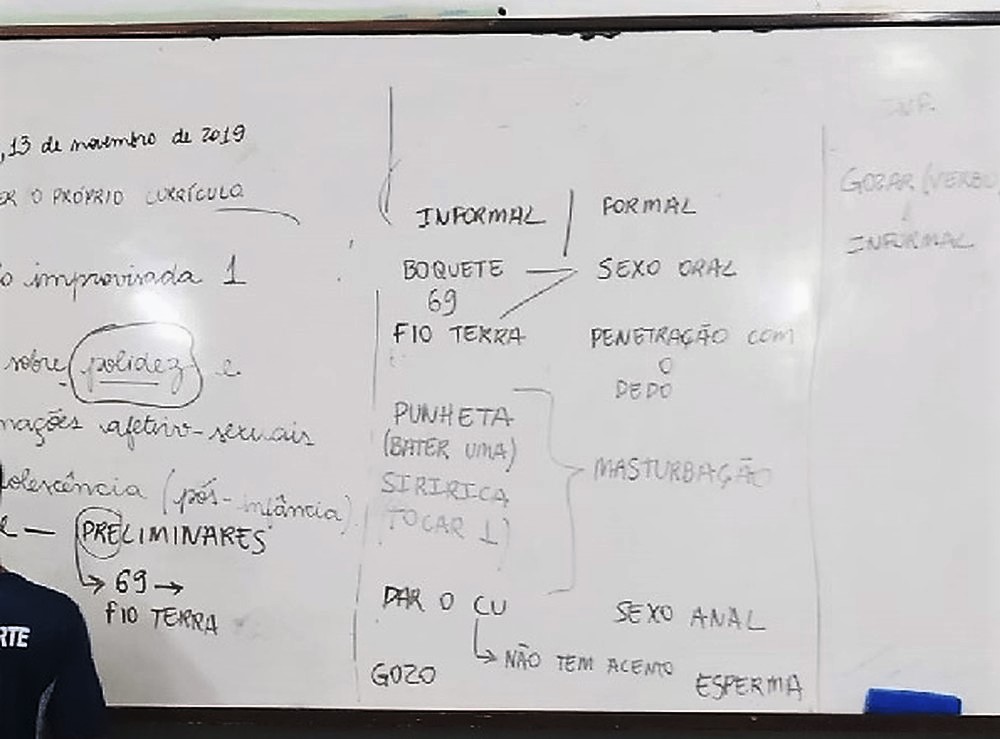 , 13 de novembro de 2019
ER O PRÓPRIO CURRÍCULO
o improvisada 1
sobre polidez e
mações afetivo-sexuais
olescência (pós-infância)
e — PRELIMINARES
→ 69 →
FIO TERRA
RTE
INFORMAL FORMAL
BOQUETE — SEXO ORAL
69
FIO TERRA PENETRAÇÃO COM
O
DEDO
PUNHETA
(BATER UMA)
SIRIRICA MASTURBAÇÃO
(TOCAR 1)
DAR O CU SEXO ANAL
→ NÃO TEM ACENTO
GOZO ESPERMA
INF.
GOZAR (VERBO
INFORMAL